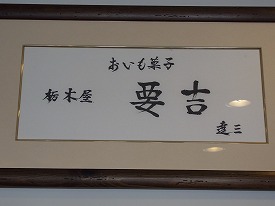 おいも菓子
栃木屋 要吉
達三